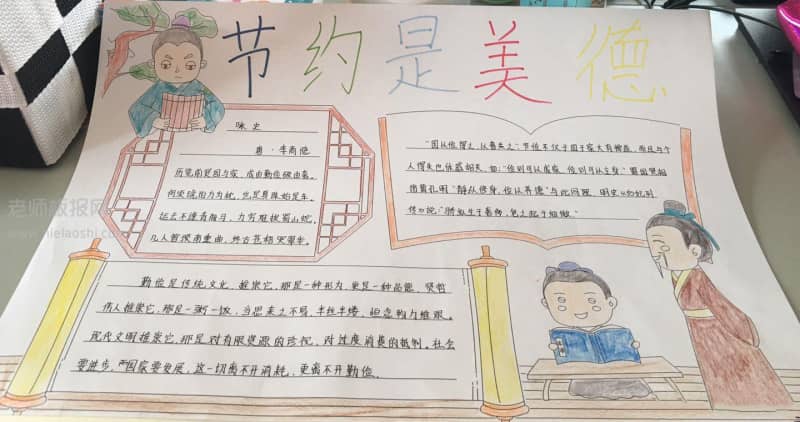 节约是美德
咏史
唐·李商隐
历览前贤国与家，成由勤俭破由奢。
何须琥珀方为枕，岂得真珠始是车。
运去不逢青海马，力穷难拔蜀山蛇。
几人曾预南薰曲，终古苍梧哭翠华。
"国从俭得之，从奢失之"，节俭不仅于国于家大有裨益，而且与个
人得失也休戚相关，如："俭则可以成家，俭则可以立身"
"静以修身，俭以养德"
勤俭是传统文化，推崇它，那是一种行为，更是一种品德，贤哲
伟人推崇它，那是一粥一饭，当思来之不易，半丝半缕，恒念物力维艰。
现代文明推崇它，那是对有限资源的珍视，对过度消费的抵制。社会
要进步，国家要发展，这一切离不开消耗，更离不开勤俭。
老师板报网
www.mielaoshi.com